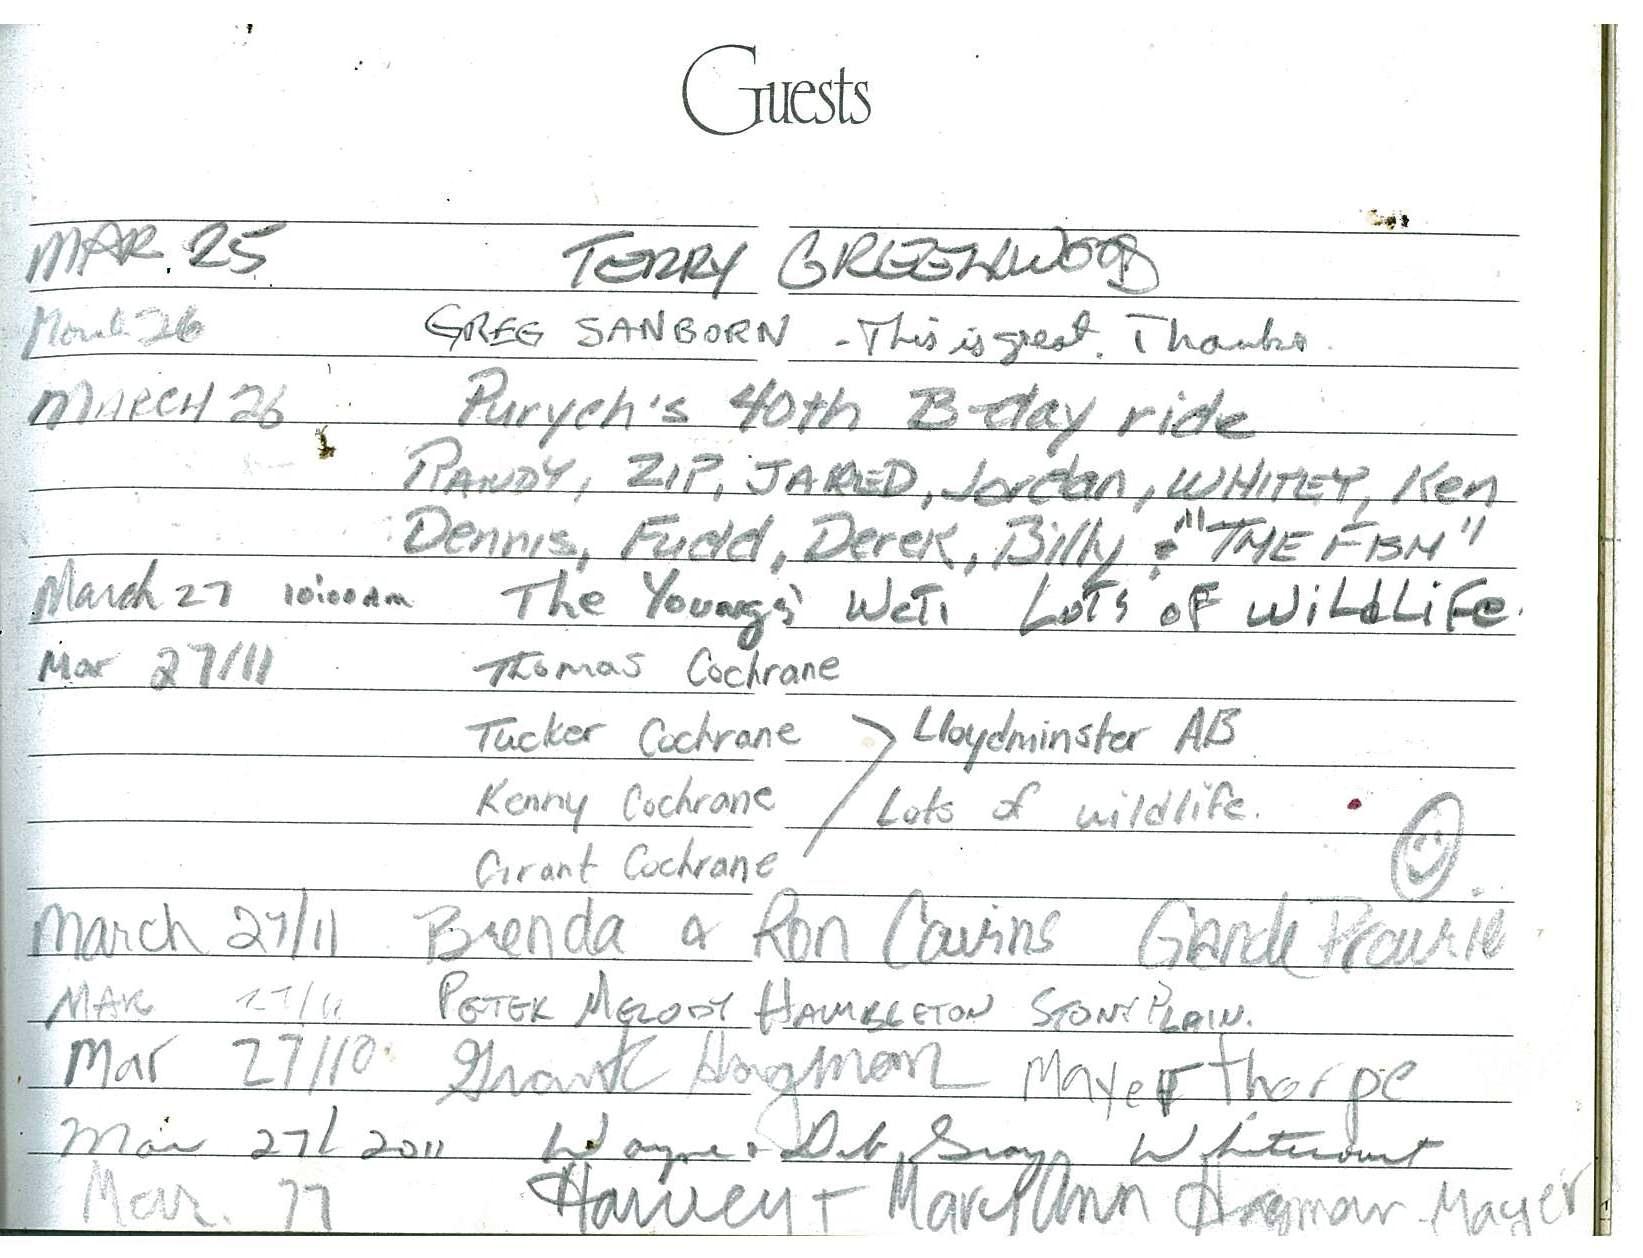 Guests
MAR. 25 TERRY GREENWOOD
March 26 GREG SANBORN - This is great. Thanks.
MARCH 26 Purych's 40th B-day ride
RANDY, ZIP, JARED, Jordan, WHITEY, Ken
Dennis, Fudd, Derek, Billy & "THE FISH"
March 27 10:00am The Youngs' WeTi LoTs oF WiLdLiFe.
Mar 27/11 Thomas Cochrane
Tucker Cochrane > Lloydminster AB
Kenny Cochrane / Lots of wildlife.
Grant Cochrane
March 27/11 Brenda & Ron Cousins Grande Prairie
MAR 27/11 PETER MELODY HAMBLETON STONY PLAIN.
Mar 27/10 Grant Hagman Mayerthorpe
Mar 27/2011 Wayne & Deb Gray Whitecourt
Mar. 27 Harvey + MaryAnn Hagman Mayer